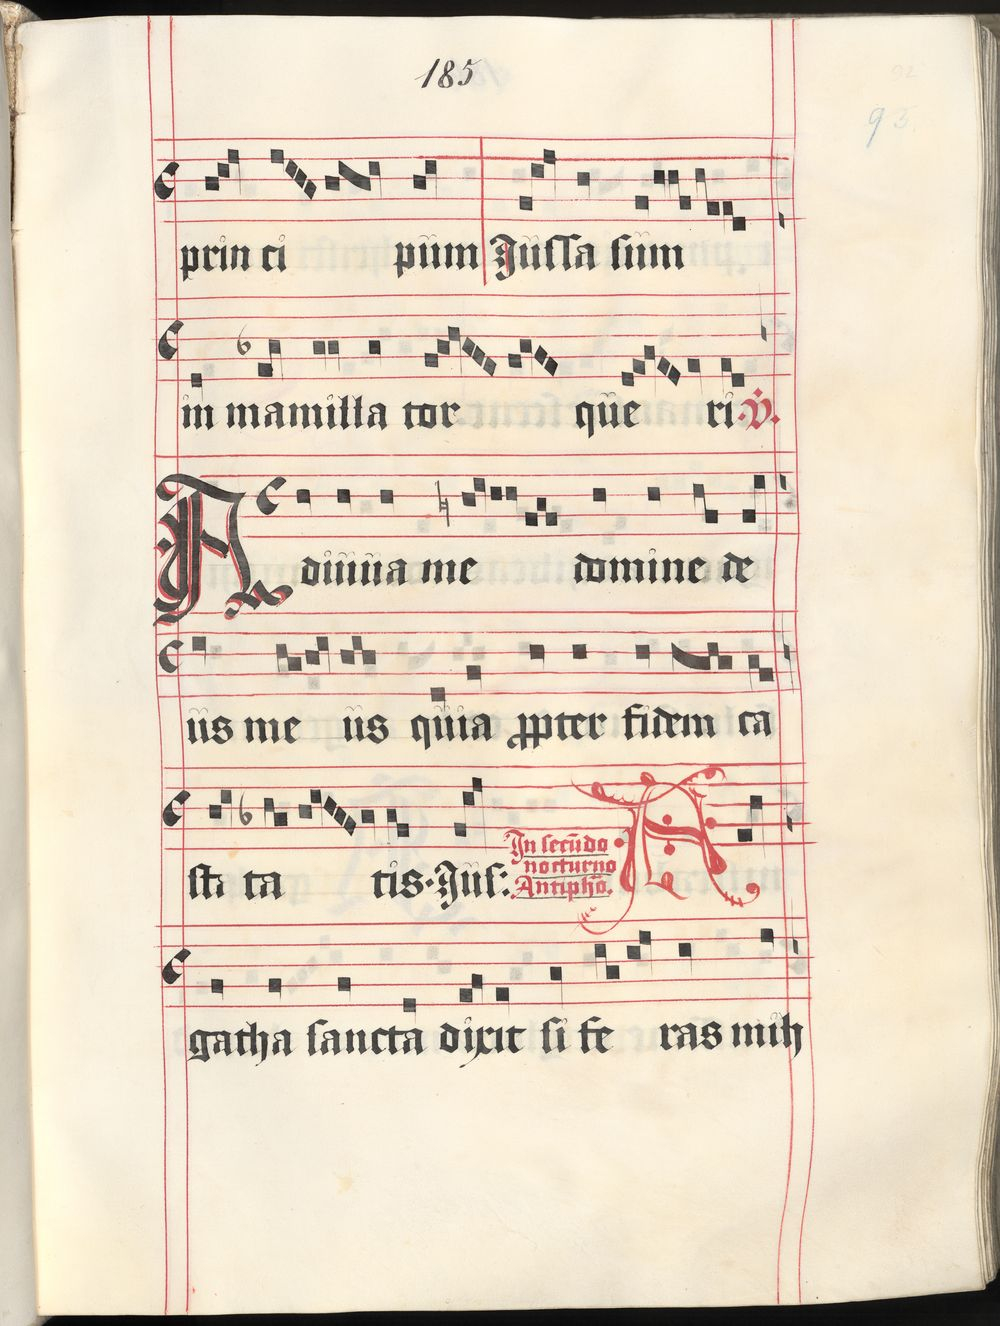 185
93.
prin ci pium Jussa sum
in mamilla tor que ri .V.
A diuua me domine de
us me us quia ppter fidem ca
sti ta tis. Jus:
In secūdo
nocturno
Antiphō.
A
gatha sancta dixit si fe ras mih